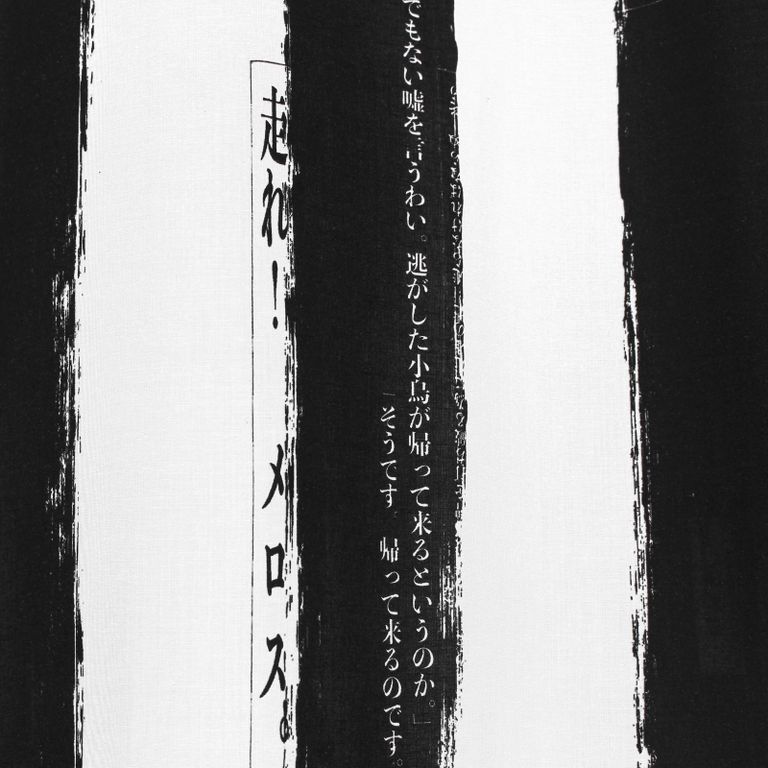 でもない嘘を言うわい。逃がした小鳥が帰って来るというのか。」
「そうです。帰って来るのです。
走れ！メロス